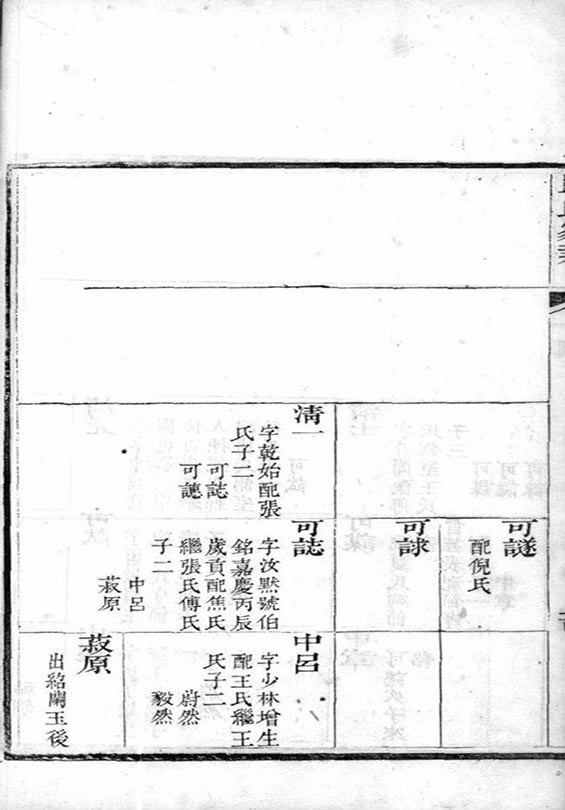 可謎
配倪氏
可訹
清一
字乾始配張
氏子二
可誌
可讜
可誌
字汝默號伯
銘嘉慶丙辰
歲貢配焦氏
繼張氏傅氏
子二
中呂
菽原
中呂
字少林增生
配王氏繼王
氏子二
蔚然
毅然
菽原
出紹蘭玉後